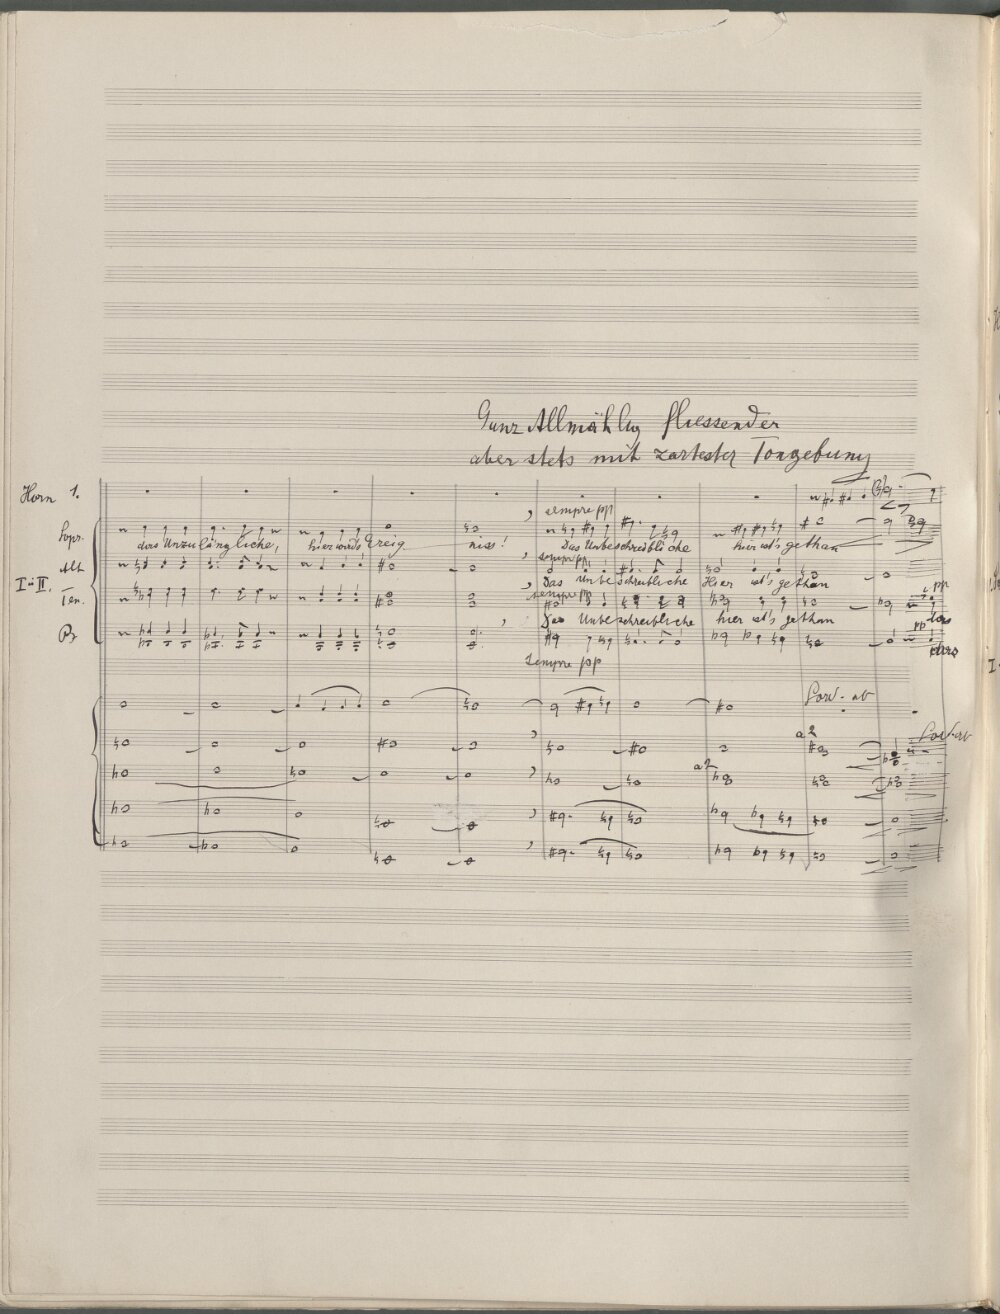 Ganz Allmählig fliessender
aber stets mit zartester Tongebung
Horn 1.
sempre pp
Sopr.
das Unzulängliche, hier wird's Ereig niss! Das Unbeschreibliche hier ist's gethan
Alt
sempre pp
I u II.
Das Unbeschreibliche Hier ist's gethan
pp
Ten.
sempre pp
Das Unbeschreibliche hier ist's gethan
das
pp
B
das
sempre pp
a2
a2